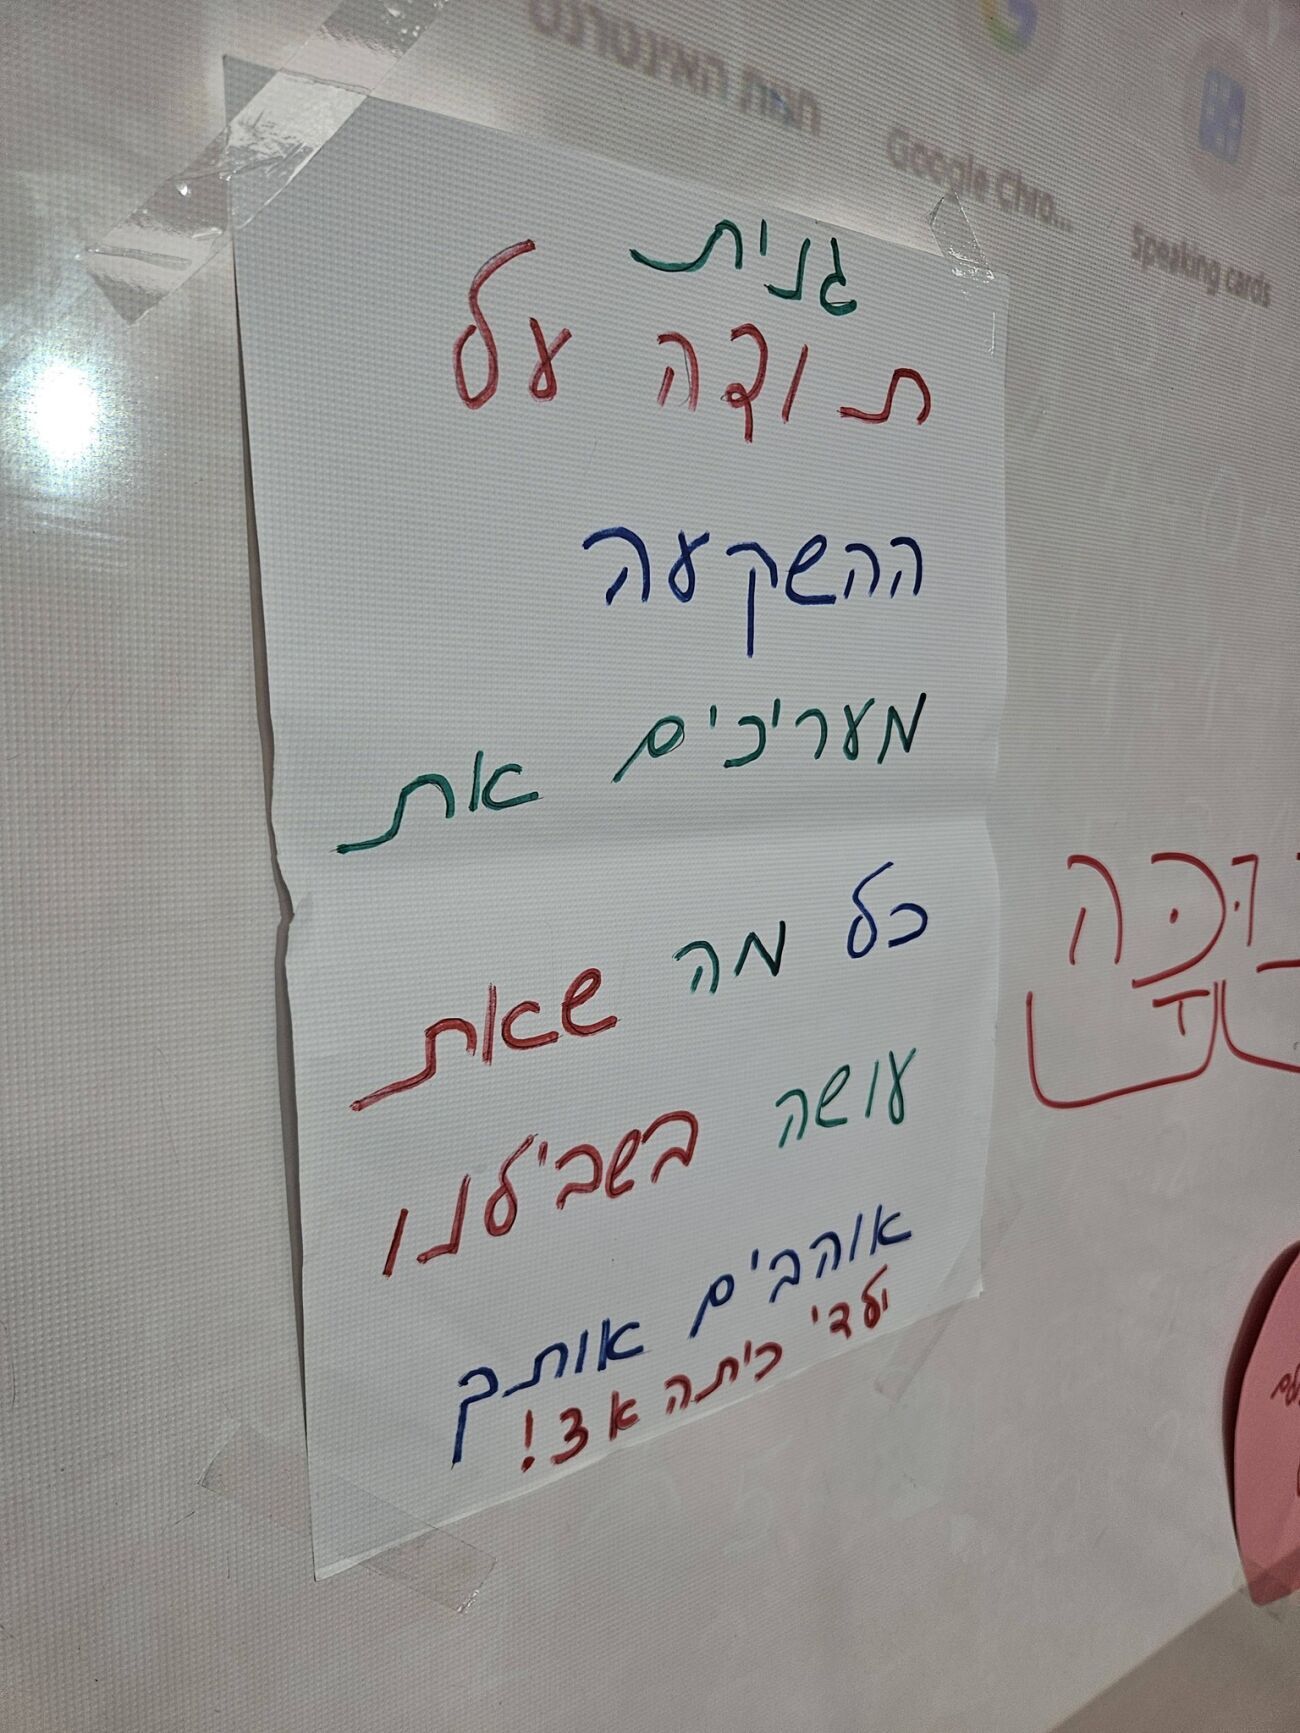 Google Chro...
Speaking cards
גנית
תודה על
ההשקעה
מעריכים את
כל מה שאת
עושה בשבילנו
אוהבים אותך
ילדי כיתה א3!